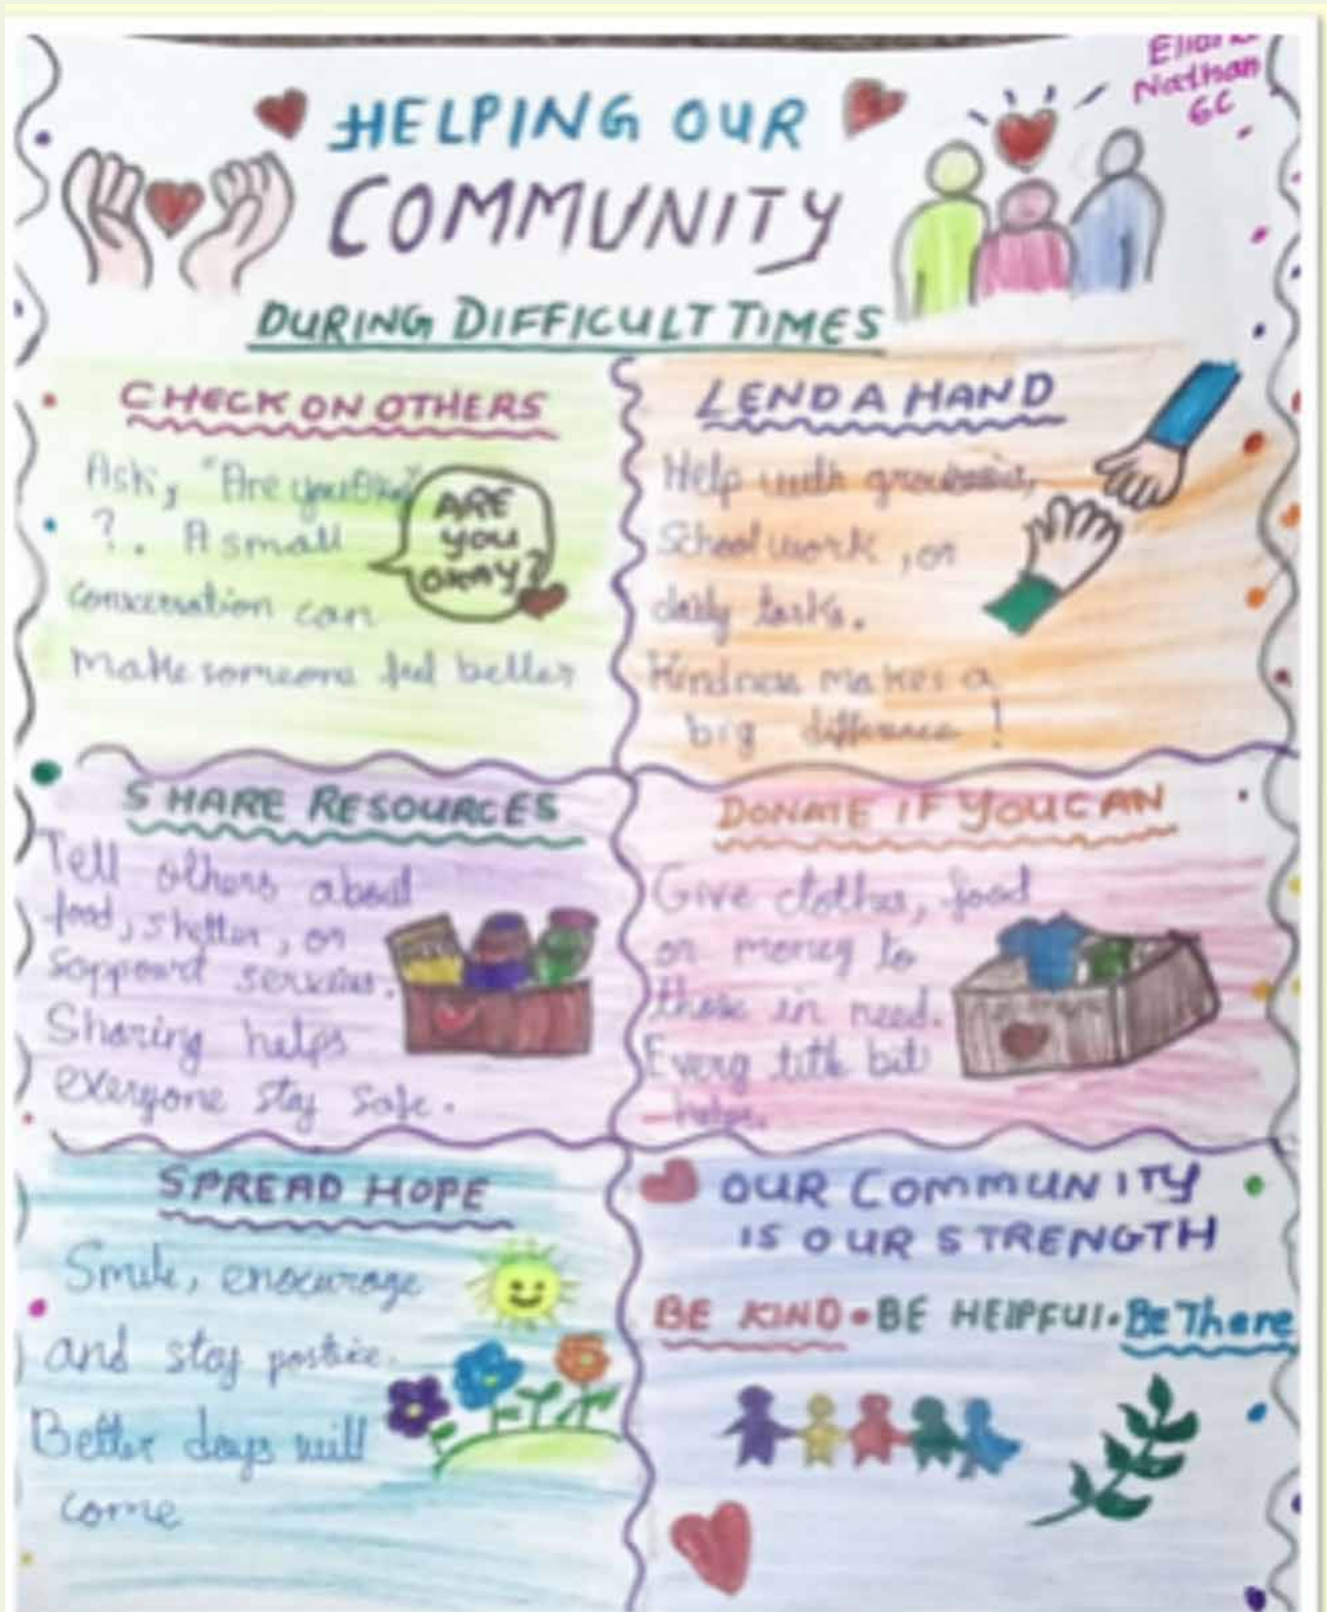 Nathan
6C
HELPING OUR
COMMUNITY
DURING DIFFICULT TIMES
CHECK ON OTHERS
Ask, "Are you
?. A small
conversation can
Make someone feel better
ARE
YOU
OKAY?
LEND A HAND
Help with groceries,
School work, or
daily tasks.
Kindness makes a
big difference !
SHARE RESOURCES
Tell others about
food, shetter, or
soppourt services.
Sharing helps
everyone stay safe.
DONATE IF YOU CAN
Give clothes, food
or money to
those in need.
Every bit
helps.
SPREAD HOPE
Smile, enocurage
and stay postive.
Better days will
come
OUR COMMUNITY
IS OUR STRENGTH
BE KIND • BE HELPFUL • Be There